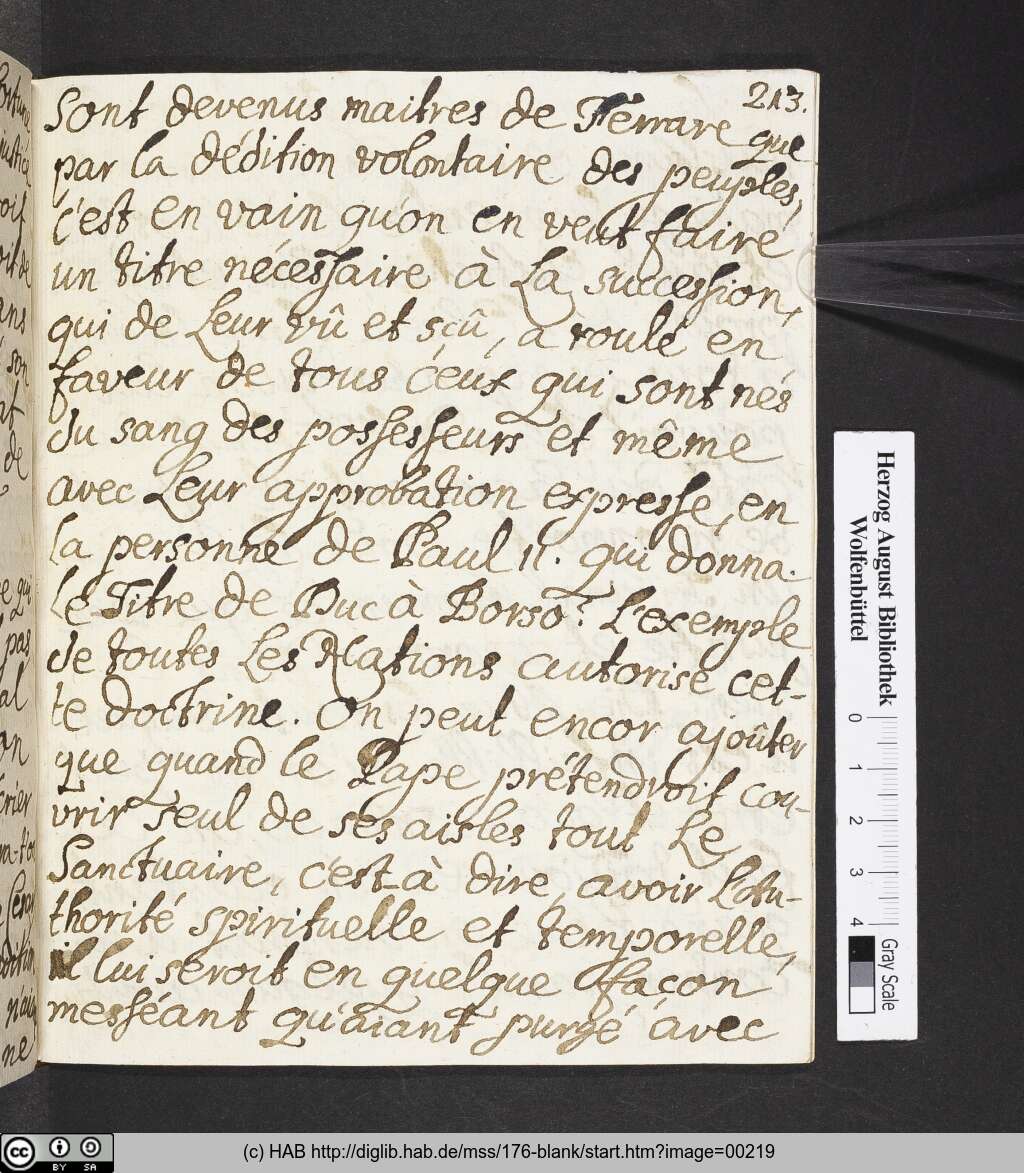 213.
Sont devenus maitres de Ferrare que
par la dédition volontaire des peuples,
c'est en vain qu'on en veut faire
un titre nécessaire à la succession,
qui de leur vû et sçû, a roulé en
faveur de tous ceux qui sont nés
du sang des possesseurs et même
avec leur approbation expresse, en
la personne de Paul II. qui donna
le Titre de Duc à Borso. L'exemple
de toutes les Nations autorise cet-
te doctrine. On peut encor ajoûter
que quand le Pape prétendroit cou-
vrir seul de ses aisles tout le
Sanctuaire, c'est-à dire, avoir l'Au-
thorité spirituelle et temporelle,
il lui seroit en quelque façon
messéant qu'aiant purgé avec
Herzog August Bibliothek
Wolfenbüttel
0 1 2 3 4
Gray Scale
cc BY SA
(c) HAB http://diglib.hab.de/mss/176-blank/start.htm?image=00219